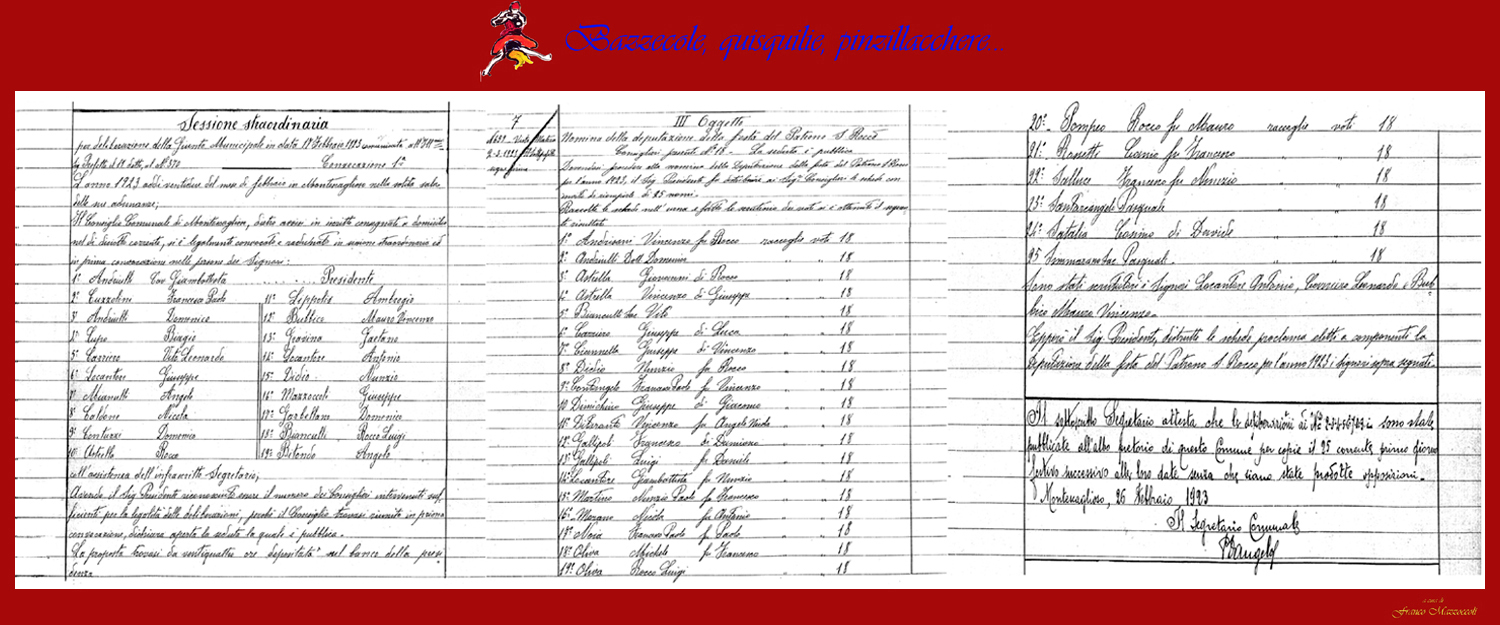 Bazzecole, quisquilie, pinzillacchere...
Sessione straordinaria
per deliberazione della Giunta Municipale in data 17 Febbraio 1923 comunicata
Convocazione 1ª
L'anno 1923 addì ventidue del mese di febbraio in Montescaglioso nella solita sala
delle sue adunanze;
Il Consiglio Comunale di Montescaglioso, dietro avvisi in iscritto consegnati a domicilio
nel dì diciotto corrente, si è legalmente convocato e radunato in sessione straordinaria ed
in prima convocazione nelle persone dei Signori:
1º Andriulli Cav. Giambattista Presidente
2º Cuzzolini Francesco Paolo
3º Andriulli Domenico
4º Lupo Biagio
5º Carriero Vito Leonardo
6º Locantore Giuseppe
7º Mianulli Angelo
8º Caldone Nicola
9º Contuzzi Domenico
10º Astrella Rocco
11º Leppolis Ambrogio
12º Bubbico Mauro Vincenzo
13º Gravina Gaetano
14º Locantore Antonio
15º Didio Nunzio
16º Mazzoccoli Giuseppe
17º Garbellano Domenico
18º Bianculli Rocco Luigi
19º Bitondo Angelo
coll'assistenza dell'infrascritto Segretario;
Avendo il Sig. Presidente riconosciuto essere il numero dei Consiglieri intervenuti suf-
ficiente per la legalità delle deliberazioni, perché il Consiglio trovasi riunito in prima
convocazione, dichiara aperta la seduta la quale è pubblica.
La proposta trovasi da ventiquattro ore depositata nel banco della presi-
denza.
7
III Oggetto
Nomina della deputazione della festa del Patrono S. Rocco
Consiglieri presenti Nº 18 - La seduta è pubblica
Dovendosi procedere alla nomina della Deputazione della festa del Patrono S. Rocco
per l'anno 1923, il Sig. Presidente fa distribuire ai Sigg. Consiglieri le schede con
mandato di riempirle di 25 nomi.
Raccolte le schede nell'urna e fatto lo scrutinio dei voti si è ottenuto il seguen-
te risultato
1º Andrisani Vincenzo fu Rocco raccoglie voti 18
2º Andriulli Dott. Domenico " " 18
3º Astrella Giovanni di Rocco " " 18
4º Astrella Vincenzo di Giuseppe " " 18
5º Bianculli Sac. Vito " " 18
6º Carriero Giuseppe di Luca " " 18
7º Ciannella Giuseppe di Vincenzo " " 18
8º Didio Nunzio fu Rocco " " 18
9º Contangelo Francesco Paolo fu Vincenzo " " 18
10 Dimichino Giuseppe di Giacomo " " 18
11º Ditaranto Vincenzo fu Angelo Nicola " " 18
12º Gallipoli Francesco di Damiano " " 18
13º Gallipoli Luigi fu Daniele " " 18
14º Locantore Giambattista fu Nunzio " " 18
15º Martino Nunzio Paolo fu Francesco " " 18
16º Morano Nicola fu Antonio " " 18
17º Nesia Francesco Paolo fu Paolo " " 18
18º Oliva Michele fu Francesco " " 18
19º Oliva Rocco Luigi " " 18
20º Pompeo Rocco fu Mauro raccoglie voti 18
21º Rossetti Cosimo fu Francesco " 18
22º Salluce Francesco fu Nunzio " " 18
23º Santarcangelo Pasquale " " 18
24º Satalia Cosimo di Davide " " 18
25 Simmarano Sac. Pasquale " " 18
Sono stati scrutatori i Signori Locantore Antonio, Carriero Leonardo e Bub-
bico Mauro Vincenzo.
Eppero il Sig. Presidente, distrutte le schede proclama eletti a componenti la
Deputazione della festa del Patrono S. Rocco per l'anno 1923 i signori sopra segnati.
Il sottoscritto Segretario attesta che le deliberazioni ai Nº 2-3-4-5-6-7 sono state
pubblicate all'albo pretorio di questo Comune per copie il 25 corrente primo giorno
festivo successivo alla loro data senza che siano state prodotte opposizioni.
Montescaglioso, 26 Febbraio 1923
Il Segretario Comunale
D'Angelo
a cura di
Franco Mazzoccoli